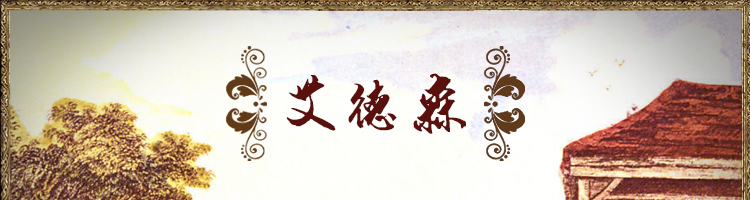 艾德森